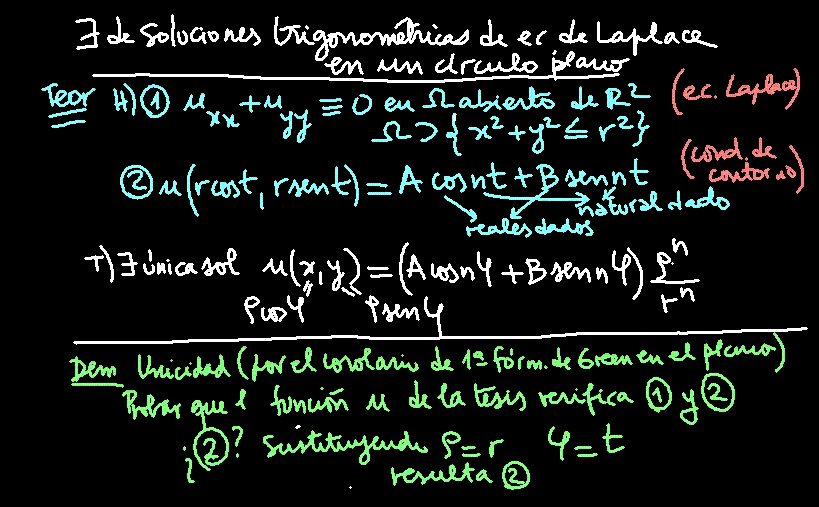 ∃ de soluciones trigonométricas de ec de Laplace
en un círculo plano
Teor H) ① u_xx + u_yy ≡ 0 en Ω abierto de R² (ec. Laplace)
Ω ⊃ { x² + y² ≤ r² }
② u(r cost, r sent) = A cosnt + B sennt (cond. de contorno)
reales dados natural dado
T) ∃ única sol u(x,y) = (A cosnφ + B sen nφ) ρⁿ/rⁿ
ρcosφ ρsenφ
Dem Unicidad (por el corolario de 1ª fórm. de Green en el plano)
Probar que l función u de la tesis verifica ① y ②
¿②? Sustituyendo ρ=r φ=t
resulta ②